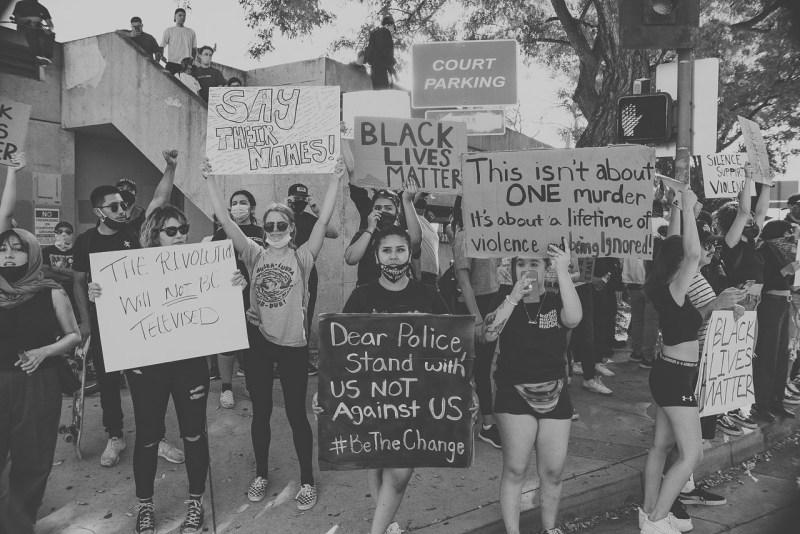 COURT
PARKING
SAY
THEIR
NAMES!
BLACK
LIVES
MATTER
This isn't about
ONE murder
It's about a lifetime of
violence and being Ignored!
SILENCE
SUPPORTS
VIOLENCE
NO
THE REVOLUTION
Will NOT BE
TELEVISED
Dear Police,
Stand with
US NOT
Against US
#BeTheChange
BLACK
LIVES
MATTER